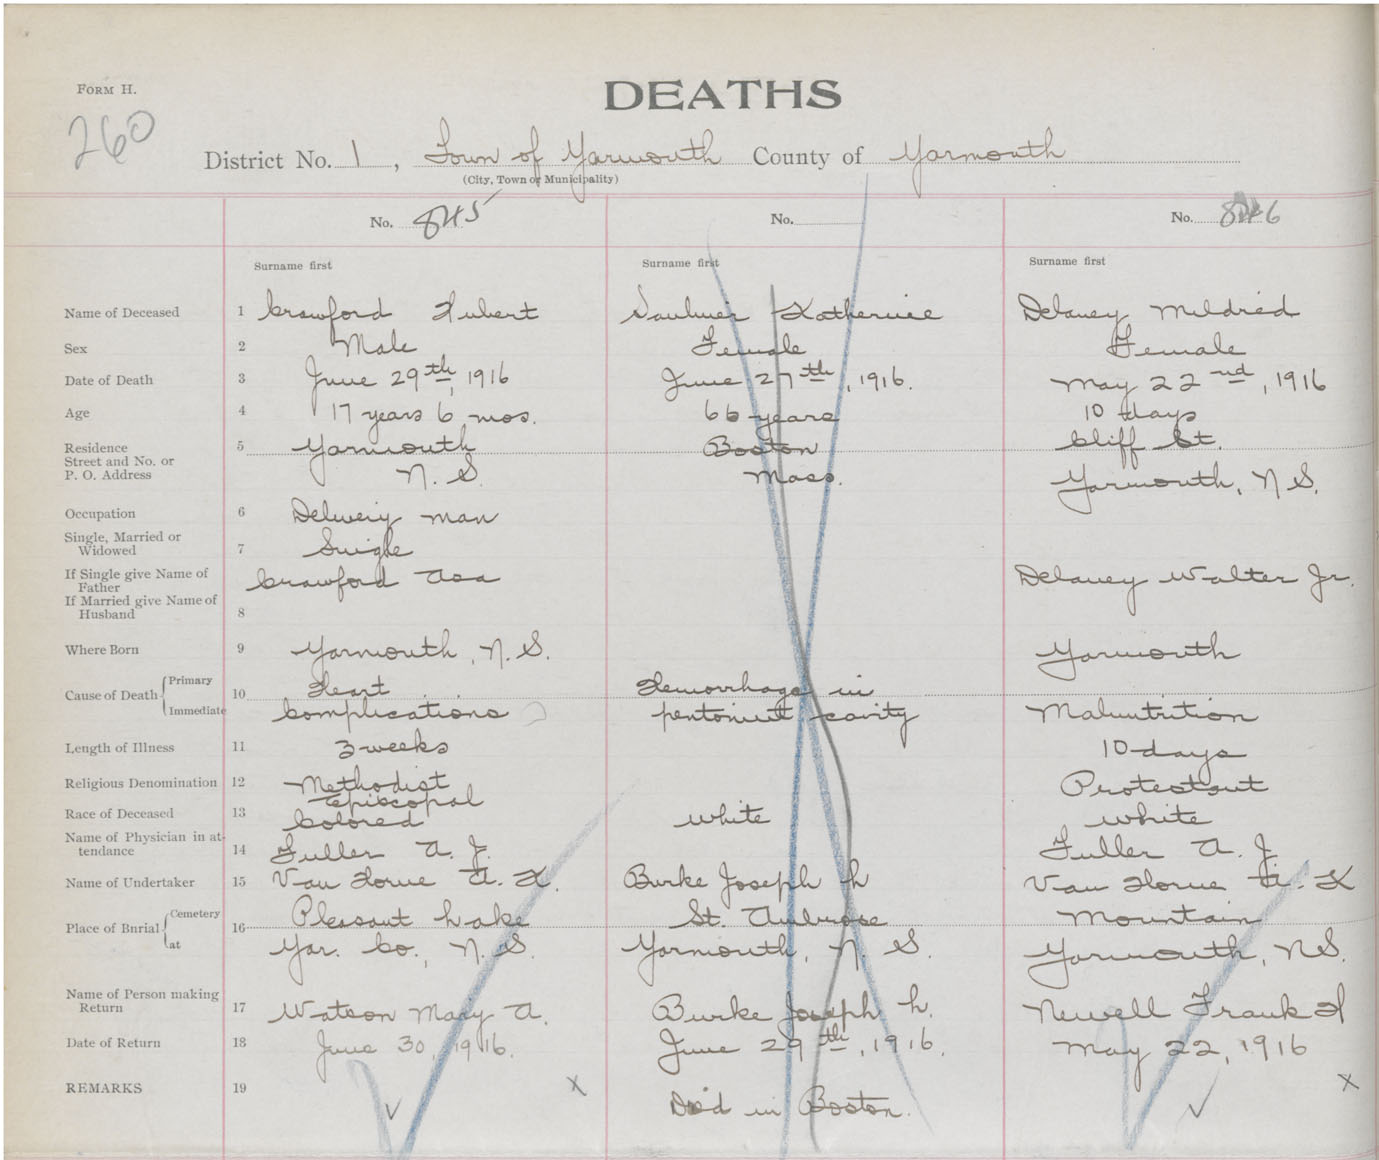 FORM H.
DEATHS
260
District No. 1, Town of Yarmouth County of Yarmouth
(City, Town or Municipality)
No. 845 No. No. 846
Surname first Surname first Surname first
Name of Deceased 1 Crawford Hubert Saulnier Katherine Delaney Mildred
Sex 2 Male Female Female
Date of Death 3 June 29th, 1916 June 27th, 1916. May 22nd, 1916
Age 4 17 years 6 mos. 66 years 10 days
Residence 5 Yarmouth Boston Cliff St.
Street and No. or
P. O. Address N. S. Mass. Yarmouth, N S.
Occupation 6 Delivery man
Single, Married or
Widowed 7 Single
If Single give Name of
Father Crawford Asa Delaney Walter Jr.
If Married give Name of
Husband 8
Where Born 9 Yarmouth, N. S. Yarmouth
Cause of Death Primary 10 Heart Hemorrhage in
Immediate complications cavity Malnutrition
Length of Illness 11 3 weeks 10 days
Religious Denomination 12 Methodist Protestant
Episcopal
Race of Deceased 13 Colored white white
Name of Physician in at-
tendance 14 Fuller A. J. Fuller A. J.
Name of Undertaker 15 Van Horne A. K. Burke Joseph L Van Horne A. K
Place of Burial Cemetery 16 Pleasant Lake St. Ambrose Mountain
at Yar. Co., N. S. Yarmouth, N. S. Yarmouth, NS.
Name of Person making
Return 17 Watson Mary A. Burke Joseph L. Newell Frank H
Date of Return 18 June 30, 1916. June 29th, 1916. May 22, 1916
REMARKS 19 Died in Boston.